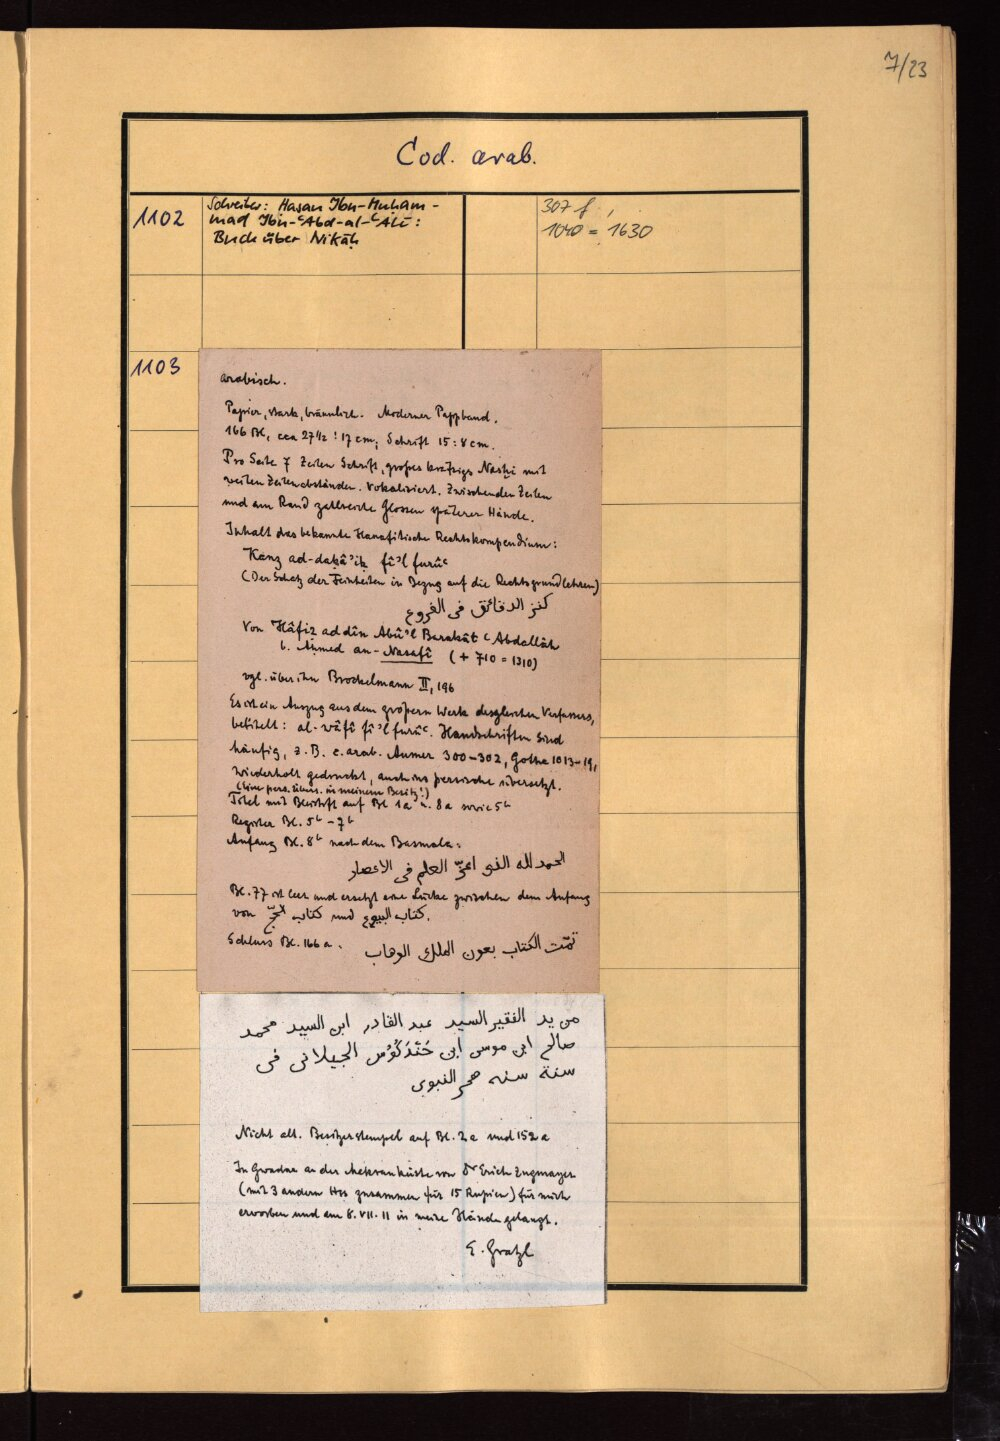 7/23
Cod. arab.
1102
Schreiber: Hasan Ibn-Muham-
mad Ibn-ʿAbd-al-ʿAlī:
Buch über Nikāḥ
307 f.,
1040 = 1630
1103
arabisch.
Papier, stark, bräunlich. Moderner Pappband.
166 Bl, cca 27½ : 17 cm; Schrift 15 : 8 cm.
Pro Seite 7 Zeilen Schrift, großes kräftiges Nasḫi mit
weiten Zeilenabständen. Vokalisiert. Zwischen den Zeilen
und am Rand zahlreiche Glossen späterer Hände.
Inhalt das bekannte Hanafitische Rechtskompendium:
Kanz ad-daḳâʾiḳ fî ʾl furûʿ
(Der Schatz der Feinheiten in Bezug auf die Rechtsgrundlehren)
كنز الدقائق فى الفروع
Von Ḥâfiẓ addîn Abûʾl Barakât ʿAbdallâh
b. Aḥmed an-Nasafî (+ 710 = 1310)
vgl. über ihn Brockelmann II, 196
Es ist ein Auszug aus dem größern Werk desgleichen Verfassers,
betitelt: al-wâfî fî ʾl furûʿ. Handschriften sind
häufig, z. B. c. arab. Aumer 300-302, Gotha 1013-19,
wiederholt gedruckt, auch ins persische übersetzt.
(Eine pers. übers. in meinem Besitz!)
Titel mit Beischrift auf Bl 1a u. 8a sowie 5b
Register Bl. 5b - 7b
Anfang Bl. 8b nach dem Basmala:
الحمد لله الذى اعزّ العلم فى الاعصار
Bl. 77 ist leer und ersetzt eine Lücke zwischen dem Anfang
von كتاب الحجّ und كتاب البيوع.
Schluss Bl. 166a. تمّت الكتاب بعون الملك الوهاب
من يد الفقير السيد عبد القادر ابن السيد محمد
صالح ابن موسى ابن الجيلانى فى
سنة سنه النبوى
Nicht alt. Besitzerstempel auf Bl. 2a und 152a
In Gwadar an der Mekranküste von Dr Erich Zugmayer
(mit 3 andern Hss zusammen für 15 Rupien) für mich
erworben und am 8. VII. 11 in meine Hände gelangt.
E. Gratzl